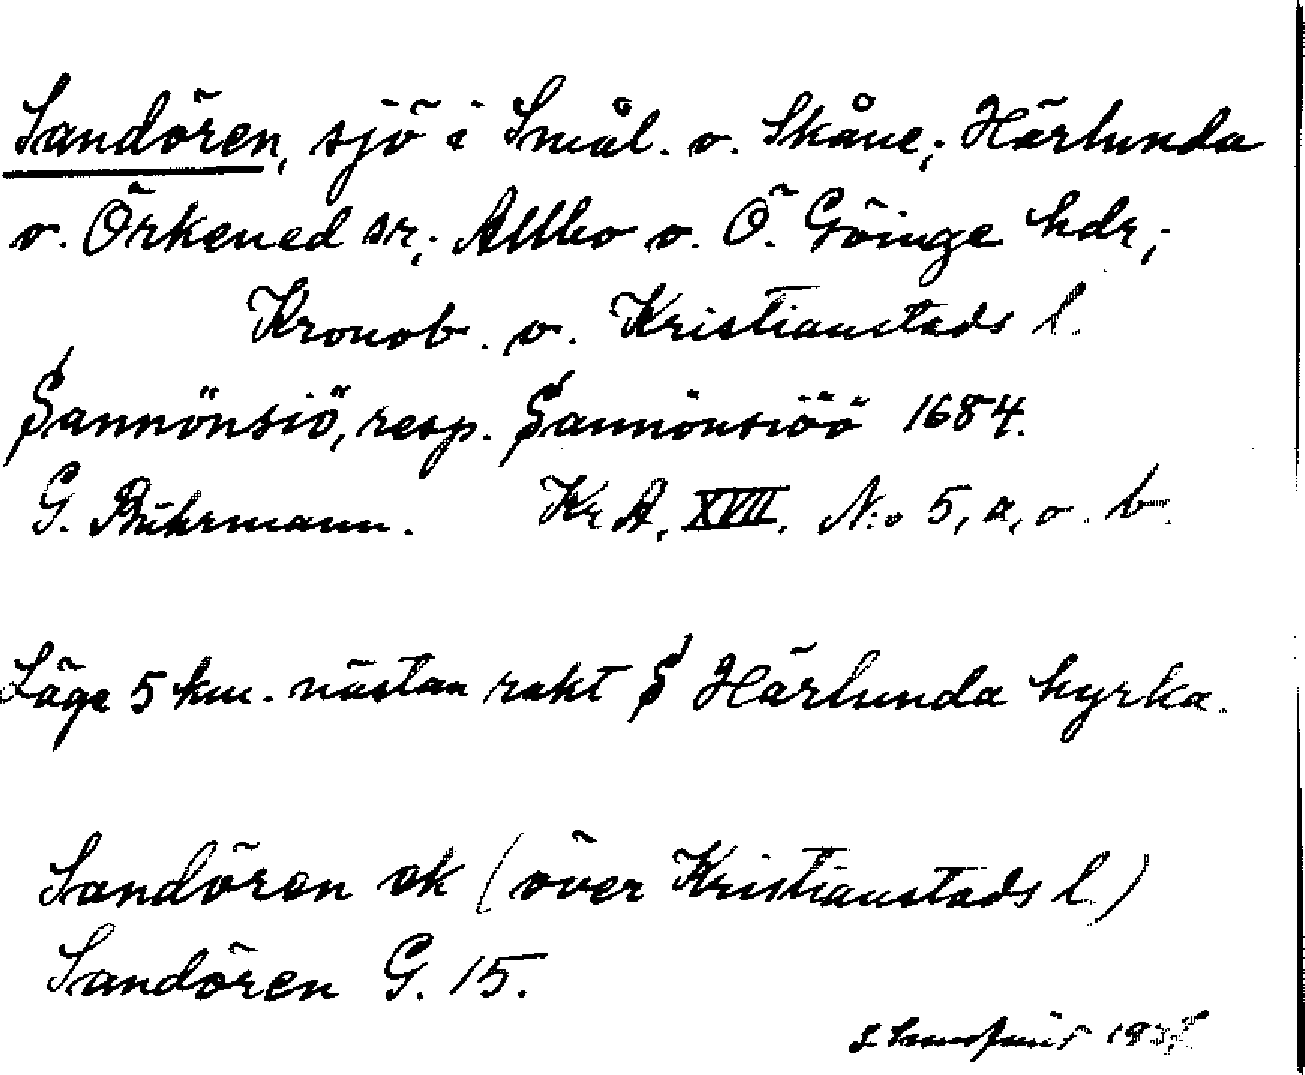 Sandören, sjö i Smål. o. Skåne; Härlunda
o. Örkened sr; Allbo o. Ö. Göinge hdr;
Kronob. o. Kristianstads l.
Sannönsiö, resp. Sannönsiöö 1684.
G. Buhrmann. Kr A. XVII. N:o 5, a, o. b.
Läge 5 km. nästan rakt S Härlunda kyrka.
Sandören ek (över Kristianstads l.)
Sandören G. 15.